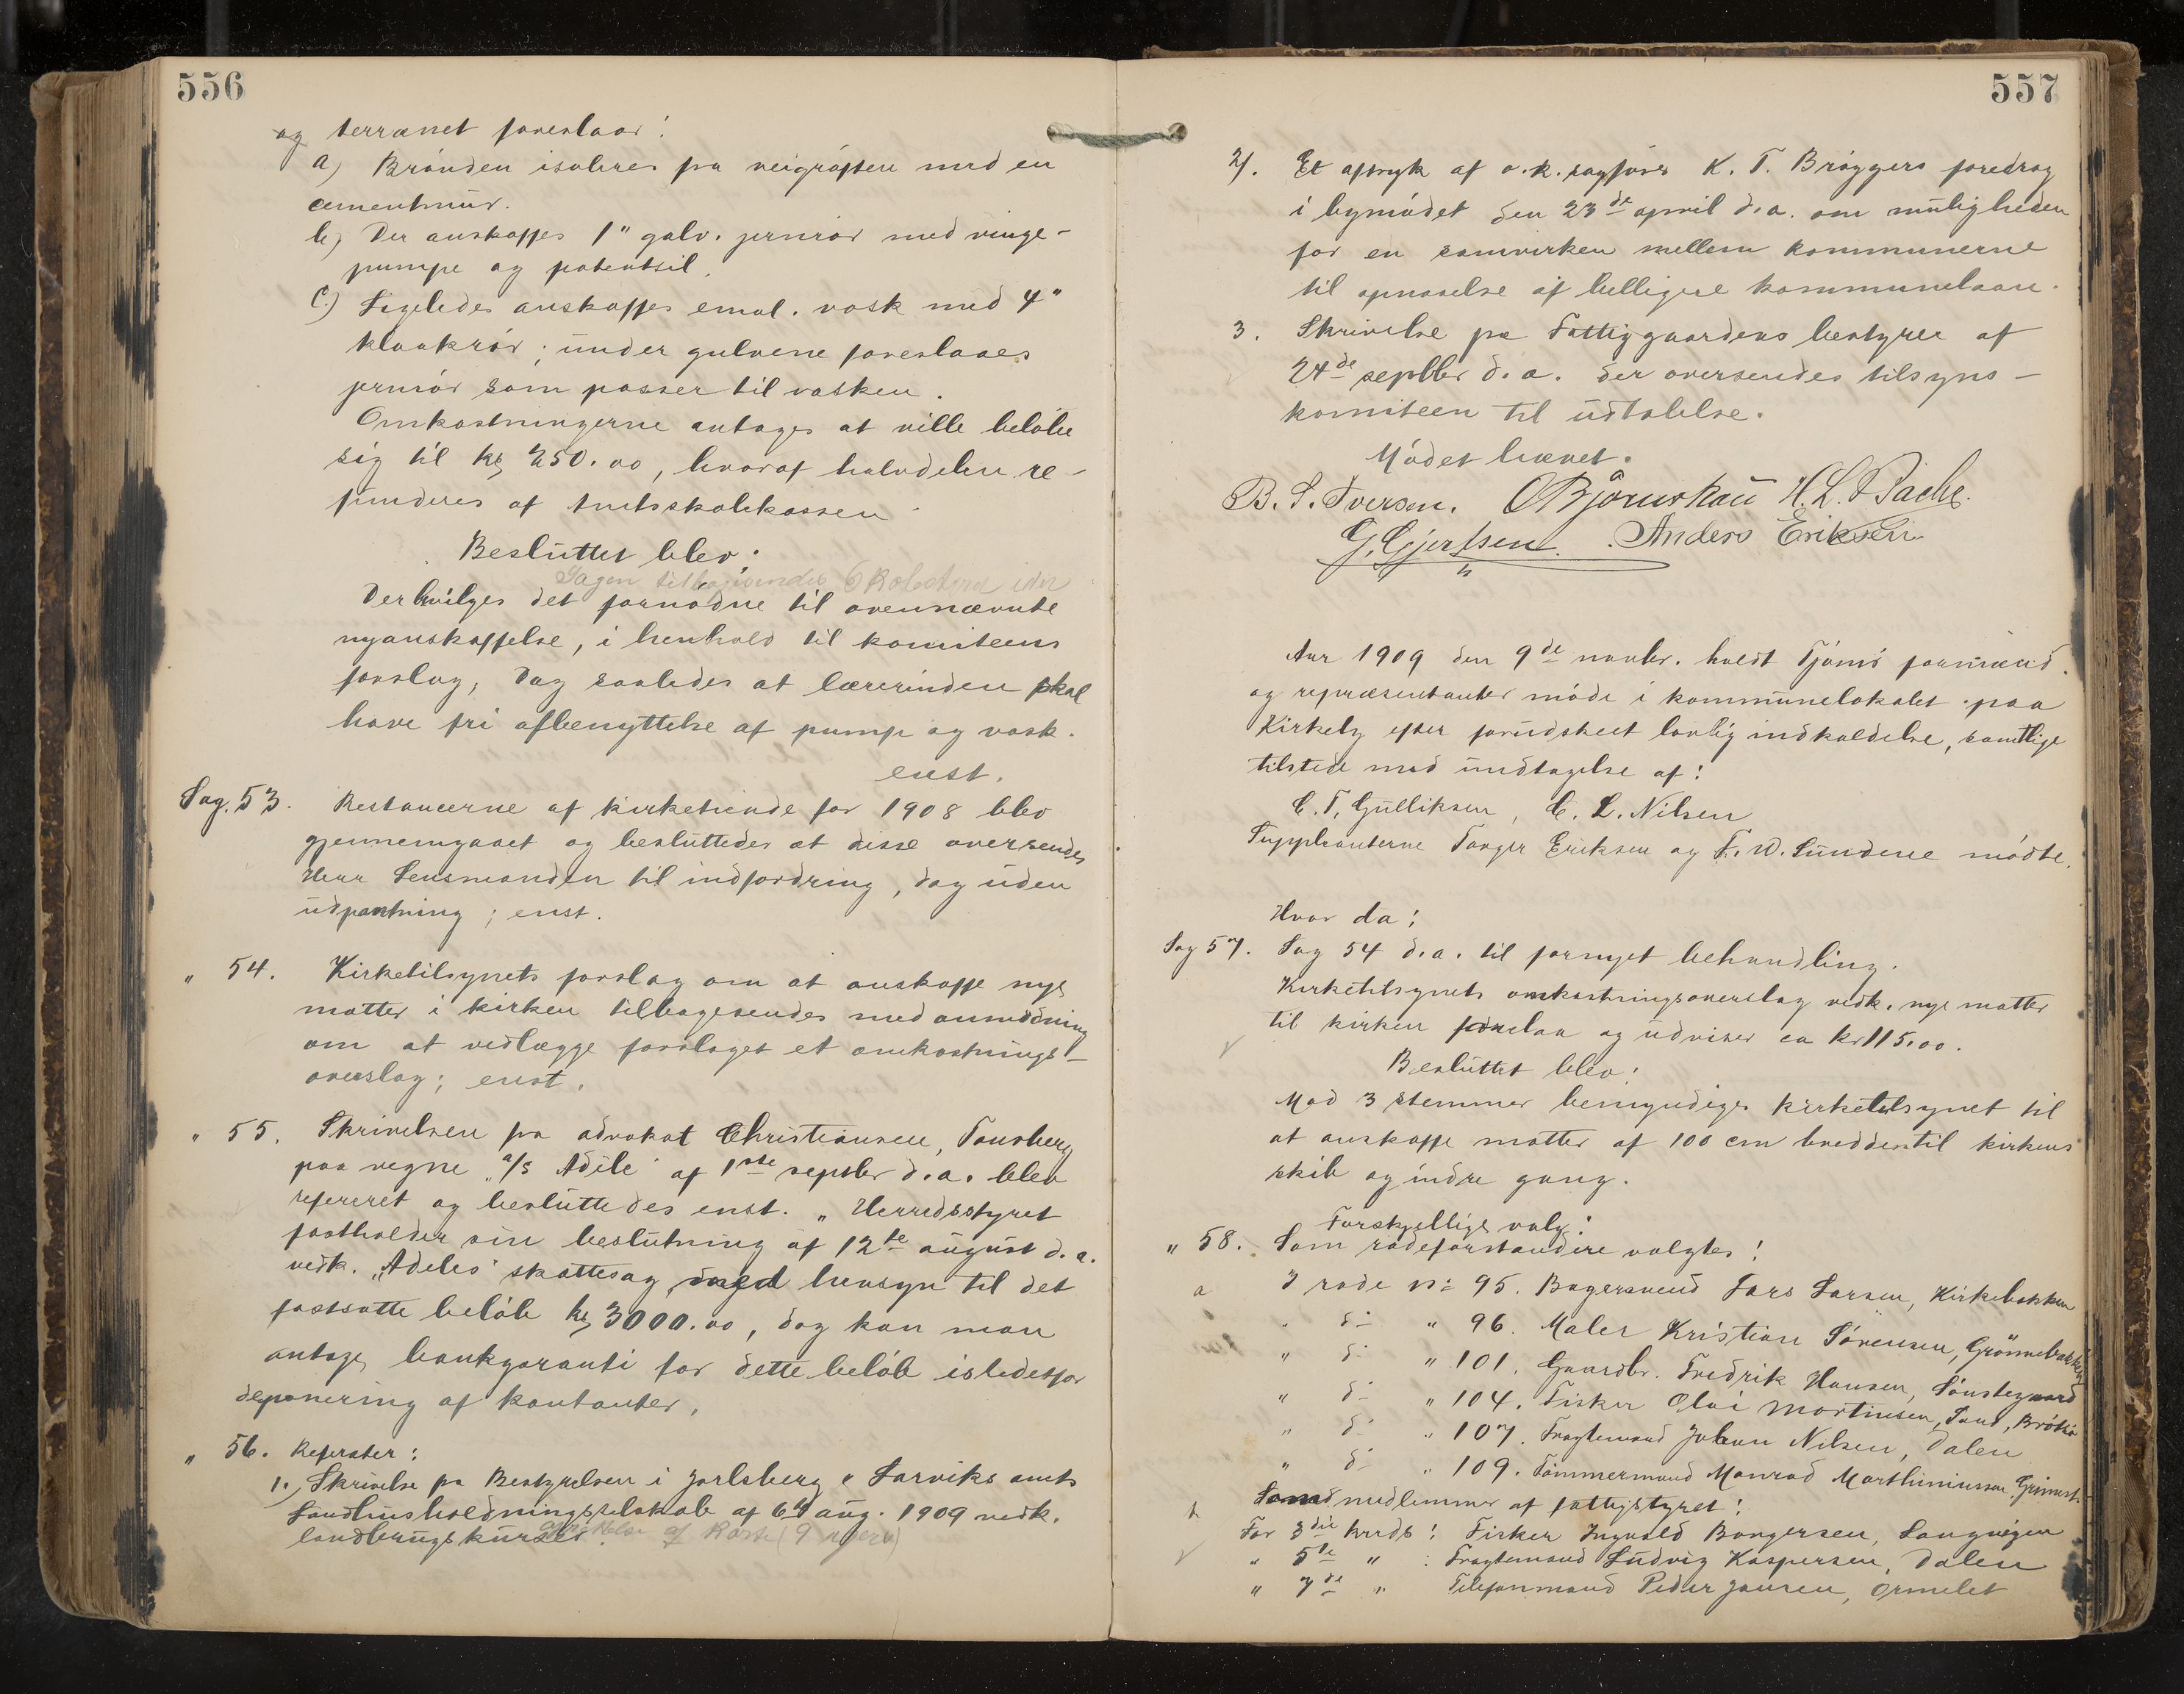 556
og terrænet foreslaar:
a) Brønden isoleres fra veigrøften med en
cementmur.
b) Der anskaffes 1" galv. jernrør med vinge-
pumpe og patentsil.
c.) Ligeledes anskaffes emal. vask med 4"
kloakrør; under gulvene foreslaaes
jernrør som passer til vasken.
Omkostningerne antages at ville beløbe
sig til kr 250.00, hvoraf halvdelen re-
funderes af Amtsskolekassen.
Besluttet blev:
Sagen tilbagesendes
Der bevilges det fornødne til ovennævnte
nyanskaffelse, i henhold til komiteens
forslag, dog saaledes at lærerinden skal
have fri afbenyttelse af pump og vask.
enst.
Sag. 53. Restancerne af kirketiende for 1908 blev
gjennemgaaet og besluttedes at disse oversendes
Herr Lensmanden til indfordring, dog uden
udpantning; enst.
" 54. Kirketilsynets forslag om at anskaffe nye
matter i kirken tilbagesendes med anmodning
om at vedlægge forslaget et omkostnings-
overslag; enst.
" 55. Skrivelsen fra advokat Christiansen, Tønsberg
paa vegne "a/s Adele" af 1ste septbr d.a. blev
refereret og besluttedes enst. "Herredsstyret
fastholder sin beslutning af 12te august d.a.
vedk. "Adeles" skattesag med hensyn til det
fastsatte beløb kr 3000.00, dog kan man
antage bankgaranti for dette beløb istedetfor
deponering af kontanter.
" 56. Referater:
1.) Skrivelse fra Bestyrelsen i Jarlsberg & Larviks amts
Landhusholdningsselskab af 6te aug. 1909 vedk.
landbrugskurser.
557
2). Et aftryk af o.r. sagfører K. T. Brøggers foredrag
i bymødet den 23de april d.a. om muligheden
for en samvirken mellem kommunerne
til opnaaelse af billigere kommunelaan.
3. Skrivelse fra Fattiggaardens bestyrer af
24de septbr d.a. der oversendes tilsyns-
komiteen til udtalelse.
Mødet hævet.
B. S. Iversen. O Bjørnskau H. L. Bache.
G. Gjertsen. Anders Eriksen
Aar 1909 den 9de novbr. holdt Tjømø formænd.
og repræsentanter møde i kommunelokalet paa
Kirkeby efter forudskeet lovlig indkaldelse, samtlige
tilstede med undtagelse af:
C. T. Gulliksen, C. L. Nilsen
Suppleanterne Torger Eriksen og F. W. Sundene mødte.
Hvor da:
Sag 57. Sag 54 d.a. til fornyet behandling.
Kirketilsynets omkostningsoverslag vedk. nye matter
til kirken forelaa og udviser ca kr 115.00.
Besluttet blev:
Mod 3 stemmer bemyndiges kirketilsynet til
at anskaffe matter af 100 cm bredden til kirkens
skib og indre gang.
Forskjellige valg:
" 58. Som rodeforstandere valgtes:
a I rode No 95. Bagersvend Lars Larsen, Kirkebakken
" do " 96. Maler Kristian Sørensen, Grønnebakken
" do " 101. Gaardbr. Fredrik Hansen, Sønstegaard
" do " 104. Fisker Olai Martinsen, Sund, Brøtsø
" do " 107. Fragtemand Johan Nilsen, Dalen
" do " 109. Tømmermand Monrad Marthiniussen, Grimest.
Som medlemmer af fattigstyret:
For 3die kreds: Fisker Ingvald Borgersen, Langvigen
" 5te " : Fragtemand Ludvig Kaspersen, Dalen
" 7de " Telefonmand Peder Jansen, Ormelet